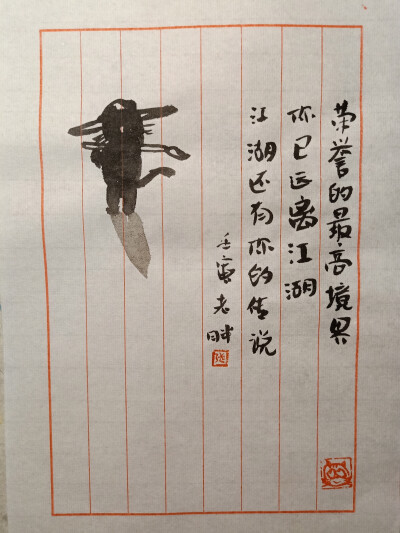 荣誉的最高境界
你已远离江湖
江湖还有你的传说
壬寅老畔